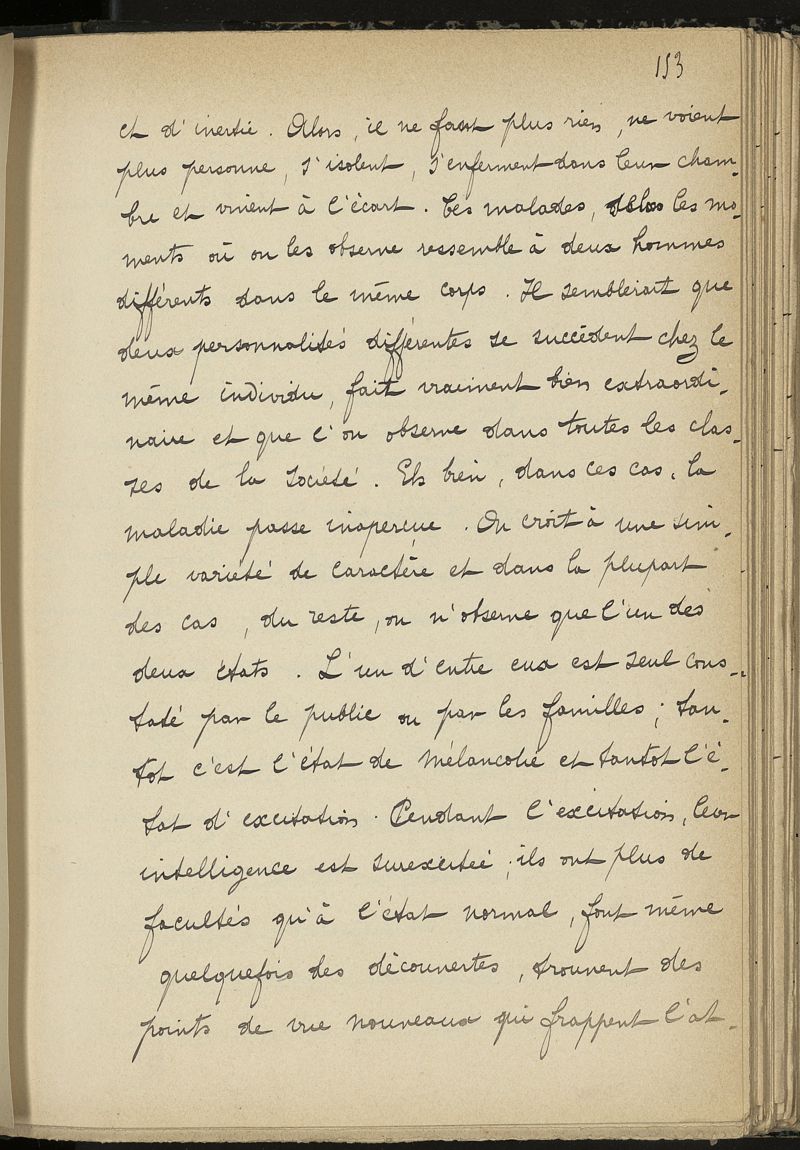 153
et d'inertie. Alors, il ne font plus rien, ne voient
plus personne, s'isolent, s'enferment dans leur cham-
bre et vivent à l'écart. Ces malades, selon les mo-
ments où on les observe ressemble à deux hommes
différents dans le même corps. Il semblerait que
deux personnalités différentes se succèdent chez le
même individu, fait vraiment bien extraordi-
naire et que l'on observe dans toutes les clas-
ses de la société. Eh bien, dans ces cas, la
maladie passe inaperçue. On croit à une sim-
ple variété de caractère et dans la plupart
des cas, du reste, on n'observe que l'un des
deux états. L'un d'entre eux est seul cons-
taté par le public ou par les familles; tan-
tot c'est l'état de mélancolie et tantot l'é-
tat d'excitation. Pendant l'excitation, leur
intelligence est surexcitée; ils ont plus de
facultés qu'à l'état normal, font même
quelquefois des découvertes, trouvent des
points de vue nouveaux qui frappent l'at-